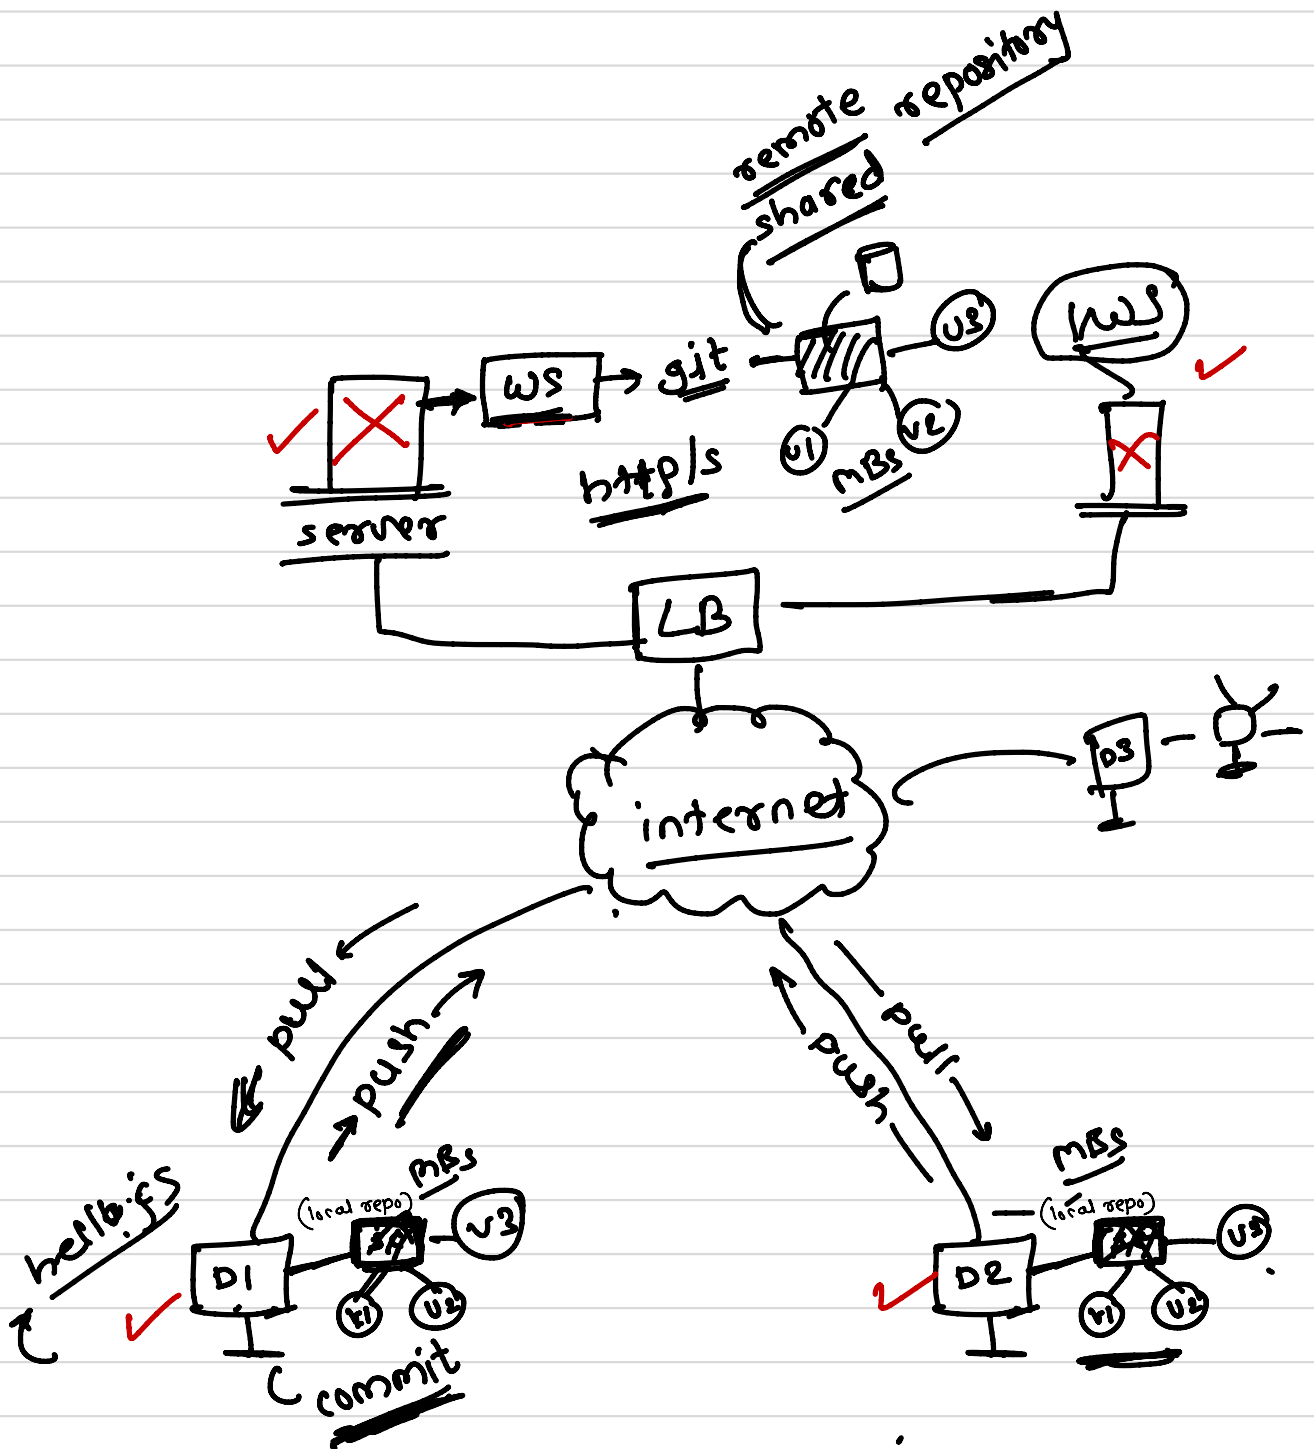 remote repository
shared
V3
WS
WS
git
V1
V2
http/s
MBs
server
LB
D3
internet
pull
push
push
pull
hello.js
MBs
(local repo)
V3
D1
V1
V2
commit
MBs
(local repo)
V3
D2
V1
V2